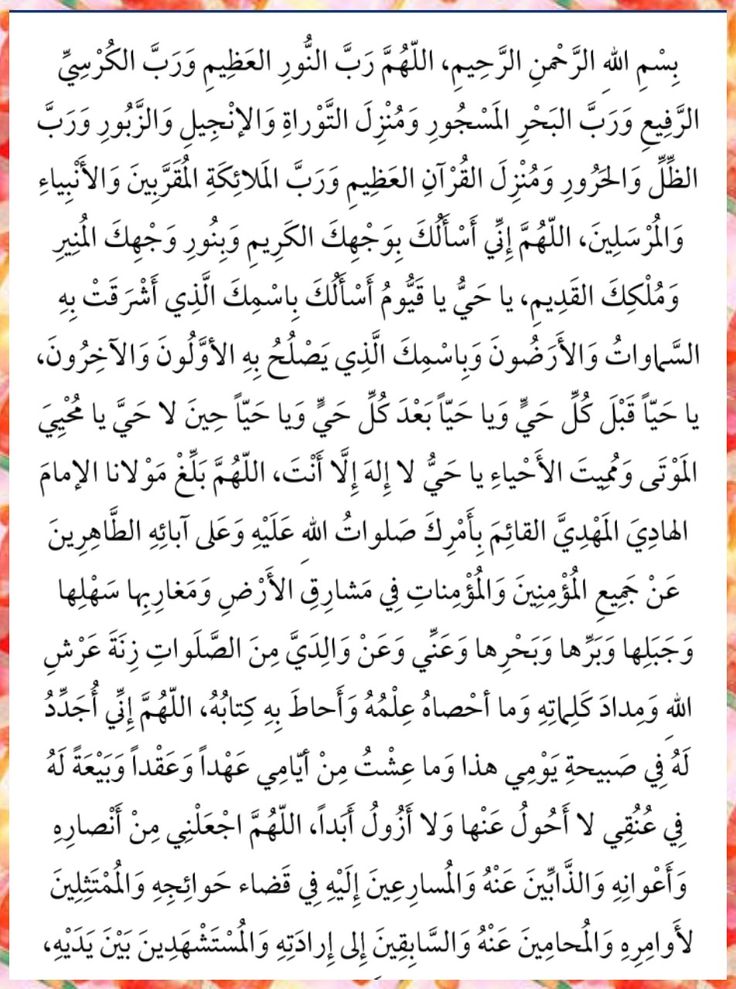 بِسْمِ اللهِ الرَّحْمنِ الرَّحِيمِ، اللّهُمَّ رَبَّ النُّورِ العَظِيمِ وَرَبَّ الكُرْسِيِّ
الرَّفِيعِ وَرَبَّ البَحْرِ المَسْجُورِ وَمُنْزِلَ التَّوْراةِ وَالإنْجِيلِ وَالزَّبُورِ وَرَبَّ
الظِّلِّ وَالحَرُورِ وَمُنْزِلَ القُرْآنِ العَظِيمِ وَرَبَّ المَلائِكَةِ المُقَرَّبِينَ وَالأَنْبِياءِ
وَالمُرْسَلِينَ، اللّهُمَّ إِنِّي أَسْأَلُكَ بِوَجْهِكَ الكَرِيمِ وَبِنُورِ وَجْهِكَ المُنِيرِ
وَمُلْكِكَ القَدِيمِ، يا حَيُّ يا قَيُّومُ أَسْأَلُكَ بِاسْمِكَ الَّذِي أَشْرَقَتْ بِهِ
السَّماواتُ وَالأَرَضُونَ وَبِاسْمِكَ الَّذِي يَصْلُحُ بِهِ الأوَّلُونَ وَالآخِرُونَ،
يا حَيّاً قَبْلَ كُلِّ حَيٍّ وَيا حَيّاً بَعْدَ كُلِّ حَيٍّ وَيا حَيّاً حِينَ لا حَيَّ يا مُحْيِيَ
المَوْتَى وَمُمِيتَ الأَحْياءِ يا حَيُّ لا إِلهَ إِلَّا أَنْتَ، اللّهُمَّ بَلِّغْ مَوْلانا الإمامَ
الهادِيَ المَهْدِيَّ القائِمَ بِأَمْرِكَ صَلواتُ اللهِ عَلَيْهِ وَعَلى آبائِهِ الطَّاهِرِينَ
عَنْ جَمِيعِ المُؤْمِنِينَ وَالمُؤْمِناتِ فِي مَشارِقِ الأَرْضِ وَمَغارِبِها سَهْلِها
وَجَبَلِها وَبَرِّها وَبَحْرِها وَعَنِّي وَعَنْ وَالِدَيَّ مِنَ الصَّلَواتِ زِنَةَ عَرْشِ
اللهِ وَمِدادَ كَلِماتِهِ وَما أحْصاهُ عِلْمُهُ وَأَحاطَ بِهِ كِتابُهُ، اللّهُمَّ إِنِّي أُجَدِّدُ
لَهُ فِي صَبِيحةِ يَوْمِي هذا وَما عِشْتُ مِنْ أيّامِي عَهْداً وَعَقْداً وَبَيْعَةً لَهُ
فِي عُنُقِي لا أَحُولُ عَنْها وَلا أَزُولُ أَبَداً، اللّهُمَّ اجْعَلْنِي مِنْ أَنْصارِهِ
وَأَعْوانِهِ وَالذَّابِّينَ عَنْهُ وَالمُسارِعِينَ إِلَيْهِ فِي قَضاء حَوائِجِهِ وَالمُمْتَثِلِينَ
لأوامِرِهِ وَالمُحامِينَ عَنْهُ وَالسَّابِقِينَ إِلى إِرادَتِهِ وَالمُسْتَشْهَدِينَ بَيْنَ يَدَيْهِ،